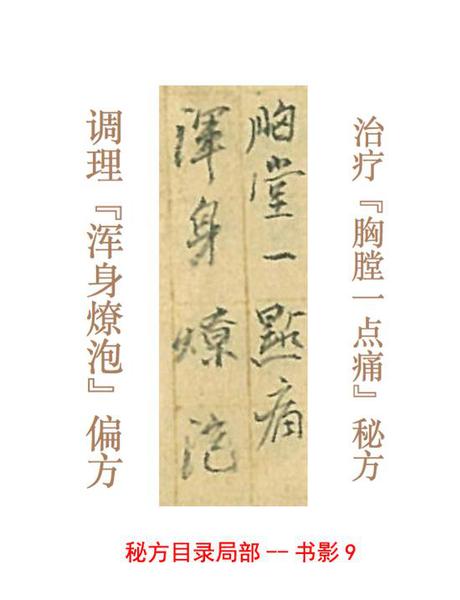 治疗『胸膛一点痛』秘方
胸堂一點痛
渾身燎泡
调理『浑身燎泡』偏方
秘方目录局部--书影9